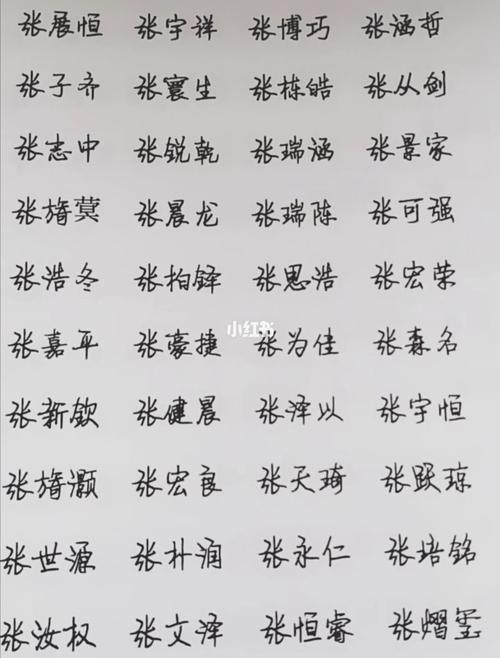 张展恒 张宇祥 张博巧 张涵哲
张子齐 张寰生 张栋皓 张从剑
张志中 张锐乾 张瑞涵 张景家
张旖蓂 张晨龙 张瑞陈 张可强
张浩冬 张柏铎 张思浩 张宏荣
张嘉平 张豪捷 张为佳 张森名
小红书
张新钦 张健晨 张泽以 张宇恒
张旖灏 张宏良 张天琦 张跃琼
张世源 张朴润 张永仁 张培铭
张汝权 张文泽 张恒睿 张熠玺